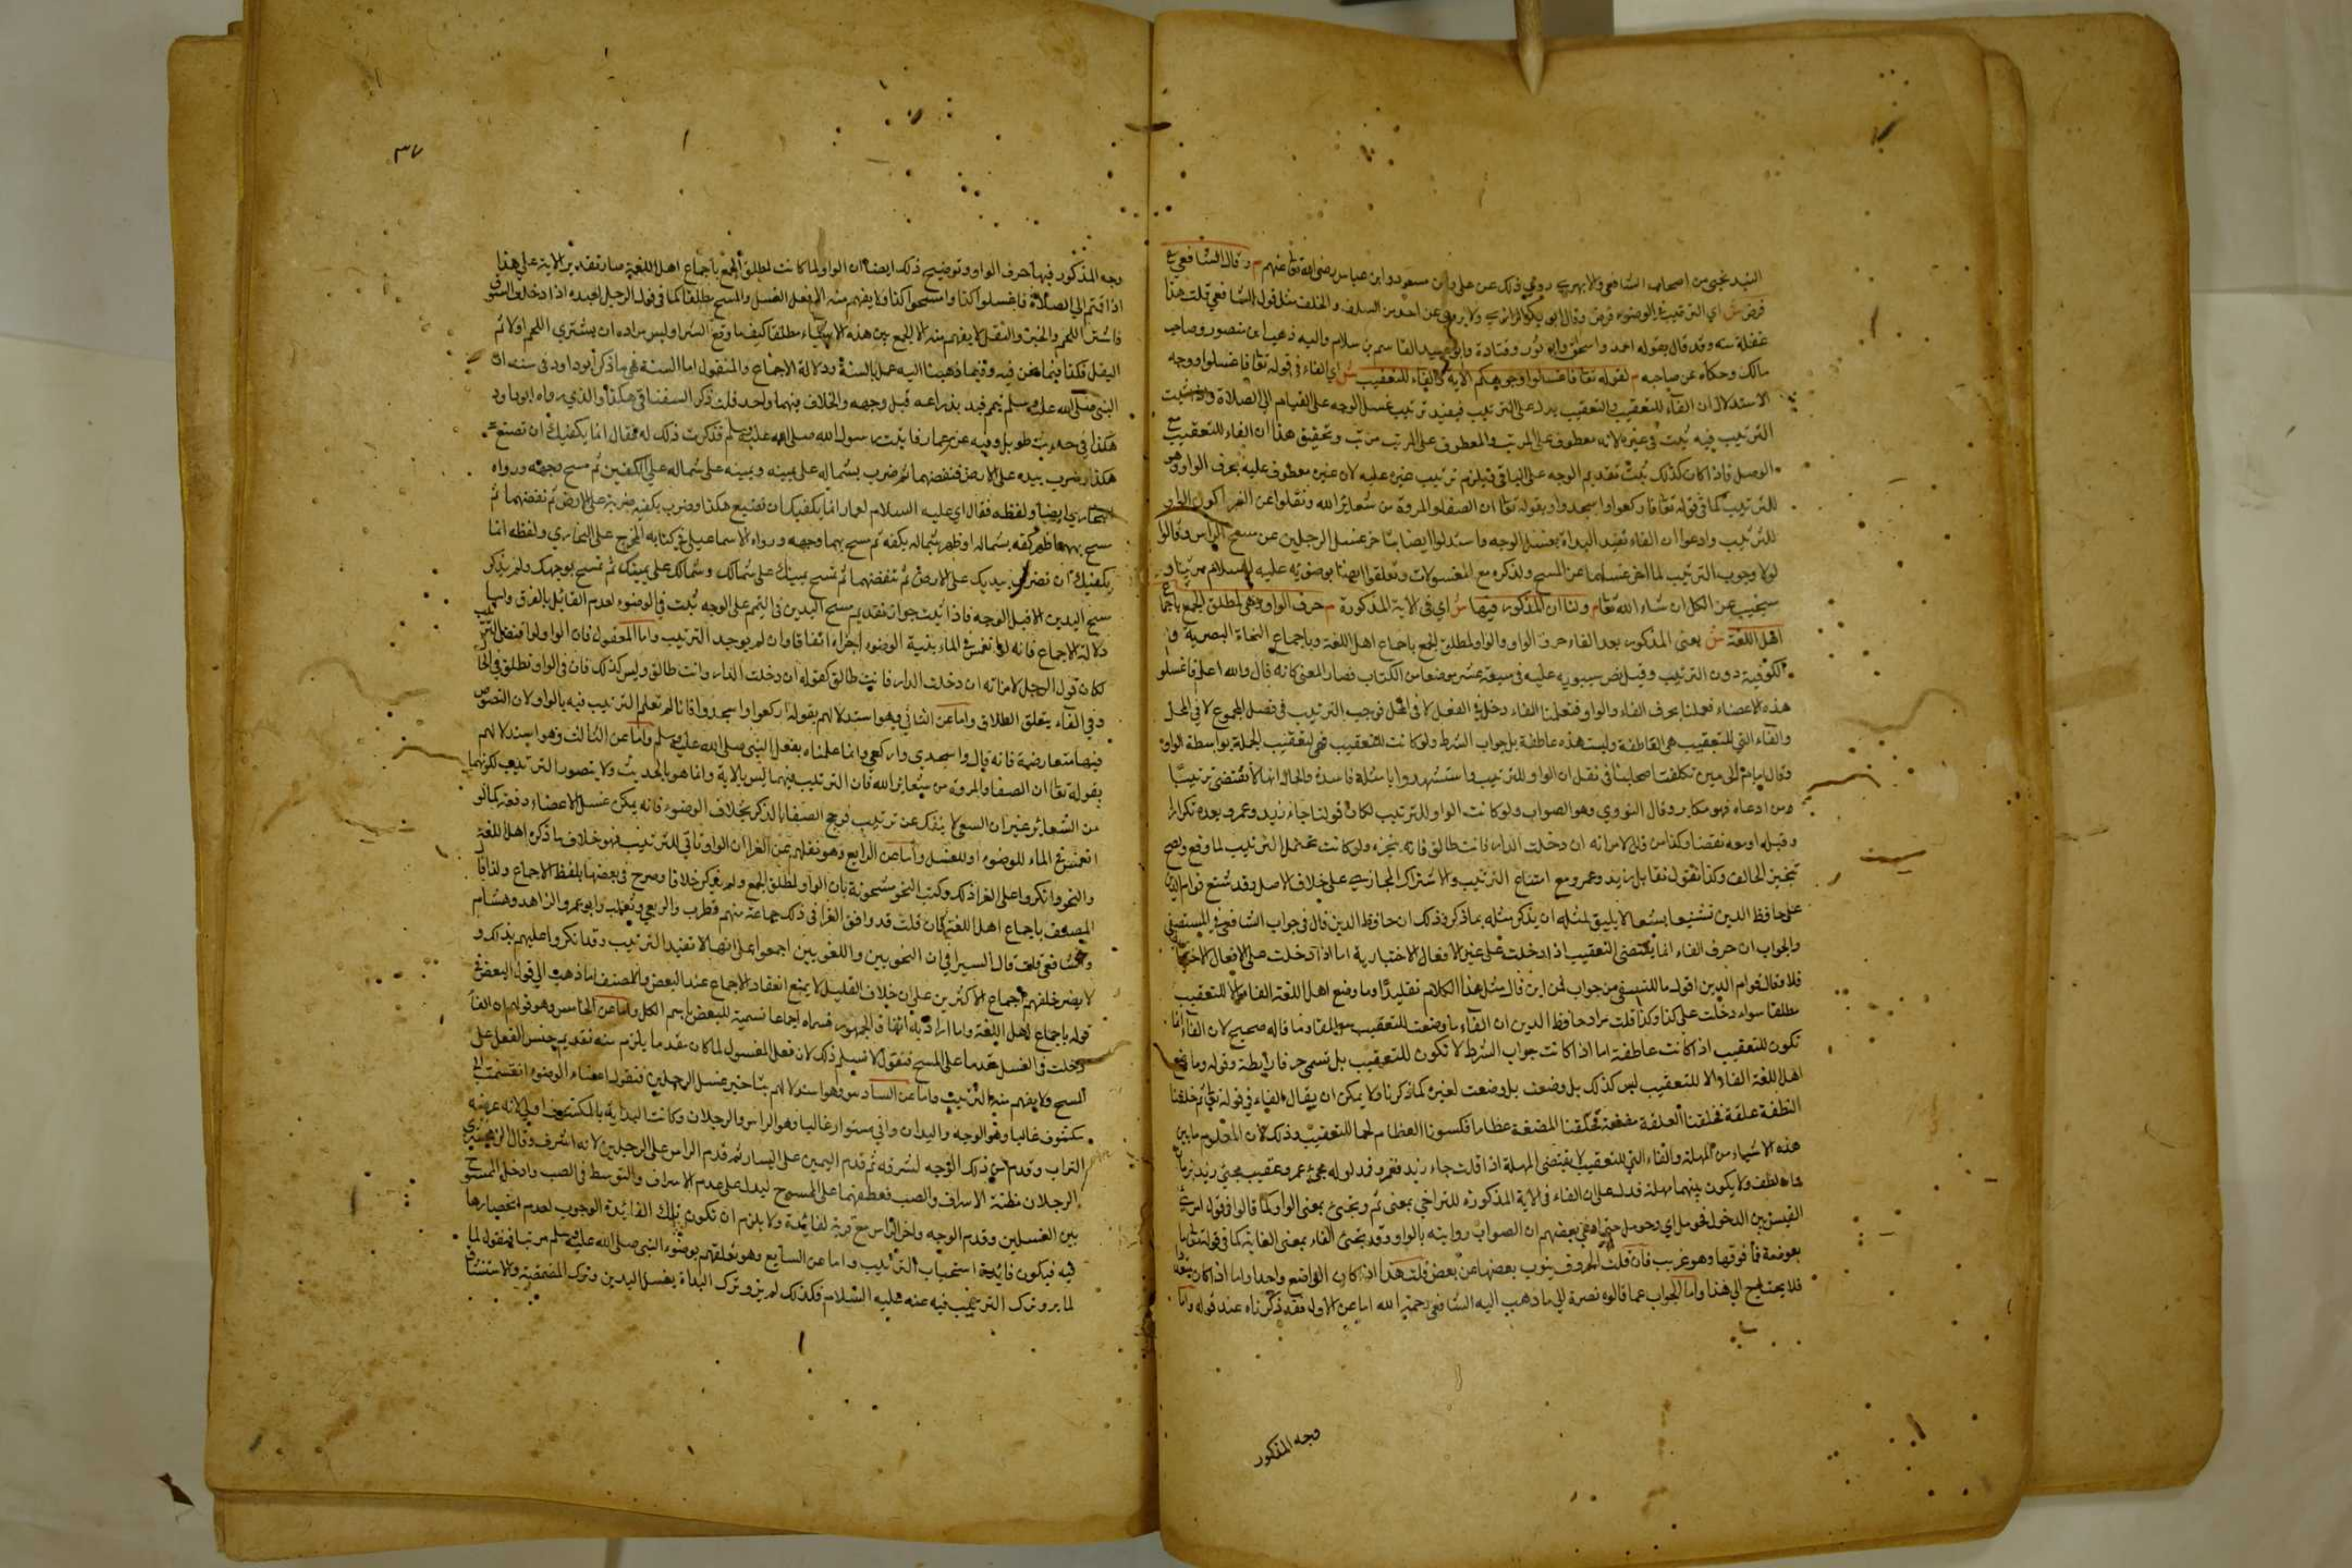 السيد نجى من اصحاب الشافعى والابهري روي ذلك عن على وابن مسعود وابن عباس رضى الله تعالى عنهم م وقال الشافعي
فرض ش اي الترتيب في الوضوء فرض وقال ابو بكر الرازي ولا يروى عن احد من السلف والخلف مثل قول الشافعي قلت هذا
غفلة منه وقد قال بقوله احمد واسحق وابو ثور وقتادة وابو عبيد القاسم بن سلام واليه ذهب ابن منصور وصاحب
مالك وحكاه عن صاحبه م لقوله تعا فاغسلوا وجوهكم الاية والفاء للتعقيب ش اي الفاء في قوله تعا فاغسلوا ووجه
الاستدلال ان الفاء للتعقيب والتعقيب يدل على الترتيب فيفيد ترتيب غسل الوجه على القيام الى الصلاة واذا ثبت
الترتيب فيه ثبت في غيره لانه معطوف على المرتب والمعطوف على المرتب مرتب وتحقيق هذا ان الفاء للتعقيب مع
الوصل فاذا كان كذلك ثبت تقديم الوجه على الباقي فيلزم ترتيب غيره عليه لان غيره معطوف عليه بحرف الواو وهو
للترتيب كما في قوله تعا فاركعوا واسجدوا وبقوله تعا ان الصفا والمروة من شعائر الله ونقلوا عن الفرا كون الواو
للترتيب وادعوا ان الفاء تفيد البداة بغسل الوجه واستدلوا ايضا بتاخر غسل الرجلين عن مسح الراس وقالوا
لولا وجوب الترتيب لما اخر غسلهما عن المسح ولذكره مع المغسولات وتعلقوا ايضا بوضوئه عليه السلام مرتبا و
سنجيب عن الكل ان شاء الله تعا م ولنا ان المذكور فيها ش اي في الاية المذكورة م حرف الواو وهى لمطلق الجمع باجماع
اهل اللغة ش يعنى المذكور بعد الفاء حرف الواو والواو لمطلق الجمع باجماع اهل اللغة وباجماع النحاة البصرية و
الكوفية دون الترتيب وقيل نص سيبويه عليه في سبعة عشر موضعا من الكتاب فصار المعنى كانه قال والله اعلم فاغسلوا
هذه الاعضاء فعملنا بحرف الفاء والواو فتعلمنا الفاء دخل في الفعل لا في المحل فوجب الترتيب في فصل المجموع لا في المحل
والفاء التي للتعقيب هى العاطفة وليست هذه عاطفة بل جواب الشرط ولو كانت للتعقيب فهى لتعقيب الجملة بواسطة الواو
وقال امام الحرمين تكلفت اصحابنا في نقل ان الواو للترتيب واستشهدوا بامثلة فاسدة والحال انها لا تقتضى ترتيبا
ومن ادعاه فهو مكابر وقال النووي وهو الصواب ولو كانت الواو للترتيب لكان قولنا جاء زيد وعمرو بعده تكرارا
وقبله او معه نقضا وكذا من قال لامراته ان دخلت الدار فانت طالق فانه يتنجز ولو كانت تحتمل الترتيب لما وقع واصح
تنجيز الحالف وكذا نقول تقابل زيد وعمرو مع امتناع الترتيب والاشتراك المجازي على خلاف الاصل وقد شنع قوام الدين
على حافظ الدين تشنيعا بشعا لا يليق لمثله ان يذكر مثله بما ذكر في ذلك ان حافظ الدين قال في جواب الشافعي في المستصفى
والجواب ان حرف الفاء انما يقتضى التعقيب اذا دخلت على غير الافعال الاختيارية اما اذا دخلت على الافعال الاختيارية
فلا وقال قوام الدين اقول ما للنسفي من جواب لمن اين قال مثل هذا الكلام تقليدا وما وضع اهل اللغة الفاء الا للتعقيب
مطلقا سواء دخلت على كذا وكذا قلت مراد حافظ الدين ان الفاء ما وضعت للتعقيب وما قاله صحيح لان الفاء انما
تكون للتعقيب اذا كانت عاطفة اما اذا كانت جواب الشرط لا تكون للتعقيب بل تسمى حرفا رابطة وقوله وما وضع
اهل اللغة الفاء الا للتعقيب ليس كذلك بل وضعت بل وضعت لغيره كما ذكرنا ولا يمكن ان يقال الفاء في قوله تعا ثم خلقنا
النطفة علقة فخلقنا العلقة مضغة فخلقنا المضغة عظاما فكسونا العظام لحما للتعقيب وذلك لان المعلوم ما بين
هذه الاشياء من المهلة والفاء التي للتعقيب لا يقتضى المهلة اذا قلت جاء زيد فعمرو فمدلوله مجئ عمرو عقيب مجئ زيد بزمان
لطف ولا يكون بينهما مهلة فدل على ان الفاء في الاية المذكورة للتراخي بمعنى ثم وتجئ بمعنى الواو كما قالوا في قول امرئ
القيس بين الدخول فحومل اي وحومل حتى ادعى بعضهم ان الصواب روايته بالواو وقد تجئ الفاء بمعنى الغاية كما في قوله تعا ما
بعوضة فما فوقها وهو غريب فان قلت الحروف ينوب بعضها عن بعض قلت هذا اذا كان الواضع واحدا واما اذا كان متعددا
فلا يحتاج الى هذا واما الجواب عما قالوه نصرة الى ما ذهب اليه الشافعي رحمة الله اما عن الاول فقد ذكرناه عند قوله واما
وجه المذكور
٣٧
وجه المذكور فيها حرف الواو وتوضيح ذلك ايضا ان الواو لما كانت لمطلق الجمع باجماع اهل اللغة صار تقدير الاية على هذا
اذا قمتم الى الصلاة فاغسلوا كذا وامسحوا كذا ولا يفهم منه الا فعل الغسل والمسح مطلقا كما في قول الرجل لعبده اذا دخلت السوق
فاشتر اللحم والخبز والبقل لا يفهم منه الا الجمع بين هذه الاشياء مطلقا كيف ما وقع الشرا وليس مراده ان يشتري اللحم اولا ثم
البقل فكذا فيما نحن فيه وفيما ذهبنا اليه عمل بالسنة ودلالة الاجماع والمنقول اما السنة فهى ما ذكره ابو داود في سننه ان
النبى صلى الله عليه وسلم تيمم فبدا بذراعه قبل وجهه والخلاف فيهما واحد قلت ذكر السغناقي هكذا والذي رواه ابو داود
هكذا في حديث طويل وفيه عن عمار فاتيت رسول الله صلى الله عليه وسلم فذكرت ذلك له فقال انما يكفيك ان تصنع
هكذا وضرب بيده على الارض فنفضهما ثم ضرب بشماله على يمينه ويمينه على شماله على الكفين ثم مسح وجهه ورواه
البخاري ايضا ولفظه فقال اي عليه السلام لعمار انما يكفيك ان تصنع هكذا وضرب بكفيه ضربة على الارض ثم نفضهما ثم
مسح بهما ظهر كفه بشماله او ظهر شماله بكفه ثم مسح بهما وجهه ورواه الاسماعيلي في كتابه المخرج على البخاري ولفظه انما
يكفيك ان تضرب بيديك على الارض ثم تنفضهما ثم تمسح بيمينك على شمالك وشمالك على يمينك ثم تمسح بوجهك ولم يذكر
مسح اليدين الا قبل الوجه فاذا ثبت جواز تقديم مسح اليدين في التيمم على الوجه ثبت في الوضوء لعدم القائل بالفرق واما
دلالة الاجماع فانه لو انغمس في الماء بنية الوضوء اجزاه اتفاقا وان لم يوجد الترتيب واما المعقول فان الواو لو اقتضت الترتيب
لكان قول الرجل لامراته ان دخلت الدار فانت طالق كقوله ان دخلت الدار وانت طالق وليس كذلك فان في الواو تطلق في الحال
وفي الفاء يتعلق الطلاق واما عن الثاني وهو استدلالهم بقوله اركعوا واسجدوا فانا لم نعلم الترتيب فيه بالواو لان النصوص
فيها متعارضة فانه قال واسجدي واركعي وانما علمناه بفعل النبي صلى الله عليه وسلم واما عن الثالث وهو استدلالهم
بقوله تعا ان الصفا والمروة من شعائر الله فان الترتيب فيهما ليس بالاية وانما هو بالحديث ولا يتصور الترتيب لكونهما
من الشعائر غير ان السعي لا ينفك عن ترتيب فرجح الصفا بالذكر بخلاف الوضوء فانه يمكن غسل الاعضاء دفعة كما لو
انغمس في الماء للوضوء او للغسل واما عن الرابع وهو نقلهم عن الفرا ان الواو تاتي للترتيب فهو خلاف ما ذكره اهل اللغة
والنحو وانكروا على الفرا ذلك وكتب النحو مشحونة بان الواو لمطلق الجمع ولم يذكر خلافا وصرح في بعضها بلفظ الاجماع ولذا قال
المصنف باجماع اهل اللغة فان قلت قد وافق الفرا في ذلك جماعة منهم قطرب والربعي وثعلب وابو عمرو الزاهد وهشام
والشافعي قلت قال السيرافي ان النحويين واللغويين اجمعوا على انها لا تفيد الترتيب وقد انكروا عليهم بذلك و
لا يضر خلفهم اجماع الاكثرين على ان خلاف القليل لا يمنع انعقاد الاجماع عند البعض والمصنف اما ذهب الى قول البعض في
قوله باجماع اهل اللغة واما اراد به اتفاق الجمهور فسماه اجماعا تسمية للبعض باسم الكل واما عن الخامس وهو قولهم ان الفاء
دخلت في الغسل مقدما على المسح فنقول لا نسلم ذلك لان فعل المغسول لما كان مقدما يلزم منه تقديم جنس الفعل على
المسح ولا يفهم منه الترتيب واما عن السادس وهو استدلالهم بتاخير غسل الرجلين فنقول اعضاء الوضوء انقسمت الى
مكشوف غالبا وهو الوجه واليدان والى مستور غالبا وهو الراس والرجلان وكانت البداية بالمكشوف اولى لانه عرضة
التراب وقدم من ذلك الوجه لشرفه ثم قدم اليمين على اليسار ثم قدم الراس على الرجلين لانه اشرف وقال الزمخشري
الرجلان مظنة الاسراف والصب فعطفهما على الممسوح ليدل على عدم الاسراف والتوسط في الصب وادخل المسح
بين الغسلين وقدم الوجه واخر الراس مع قربه لفائدة ولا يلزم ان تكون تلك الفائدة الوجوب لعدم انحصارها
فيه فيكون فائدة استحباب الترتيب واما عن السابع وهو تعلقهم بوضوء النبي صلى الله عليه وسلم مرتبا فنقول لما
لم يرو ترك الترتيب فيه عنه عليه السلام فكذلك لم يرو ترك البداة بغسل اليدين وترك المضمضة والاستنشاق